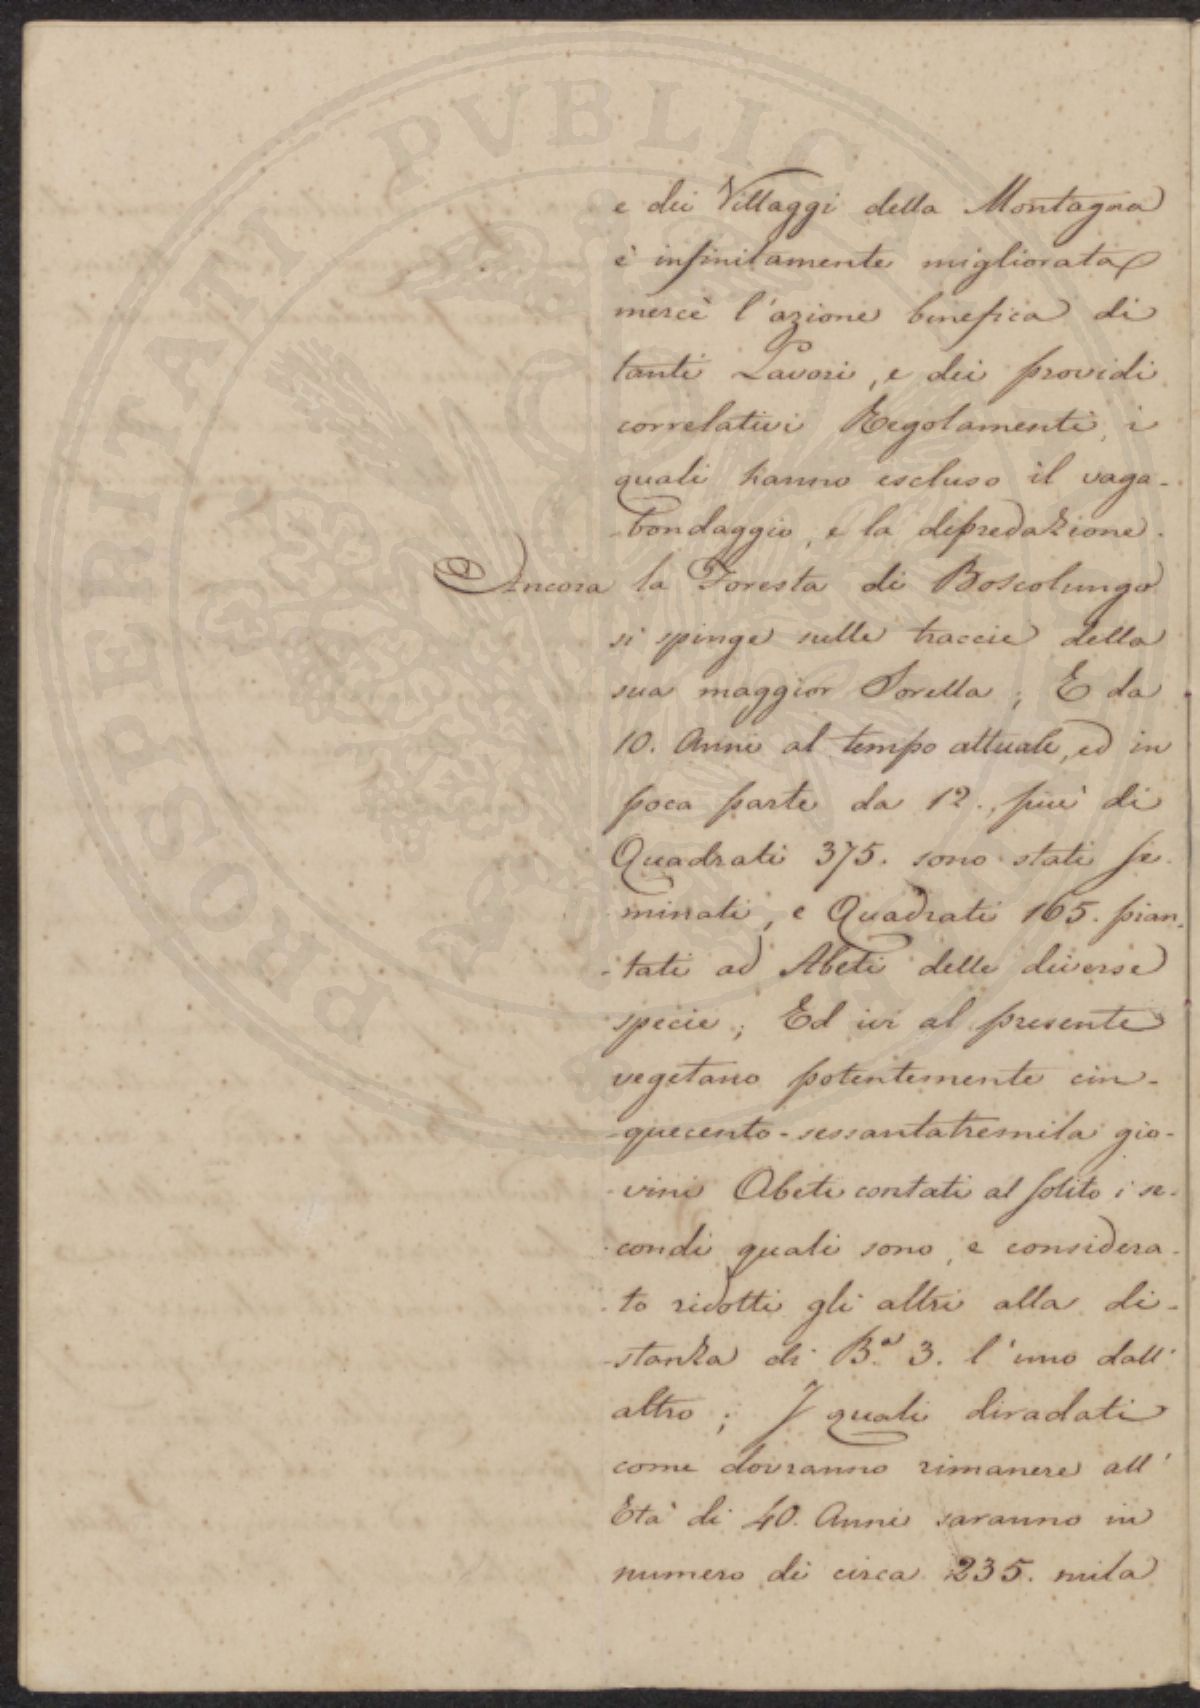 PROSPERITATI PUBLIC
e dei Villaggi della Montagna
è infinitamente migliorata
mercè l'azione benefica di
tanti Lavori, e dei providi
correlativi Regolamenti, i
quali hanno escluso il vaga-
-bondaggio, e la depredazione.
Ancora la Foresta di Boscolungo
si spinge sulle traccie della
sua maggior Sorella; E da
10. Anni al tempo attuale, ed in
poca parte da 12., più di
Quadrati 375. sono stati se-
minati, e Quadrati 165. pian-
-tati ad Abeti delle diverse
specie; Ed ivi al presente
vegetano potentemente cin-
-quecento-sessantatremila gio-
-vini Abeti contati al solito i se-
-condi quali sono, e considera-
-to ridotti gli altri alla di-
-stanza di B.a 3. l'uno dall'
altro; I quali diradati
come dovranno rimanere all'
Età di 40. Anni saranno in
numero di circa 235. mila